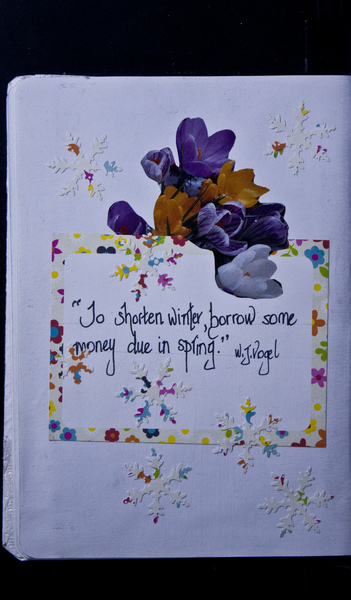 "To shorten winter, borrow some
money due in spring." W.J.Vogel